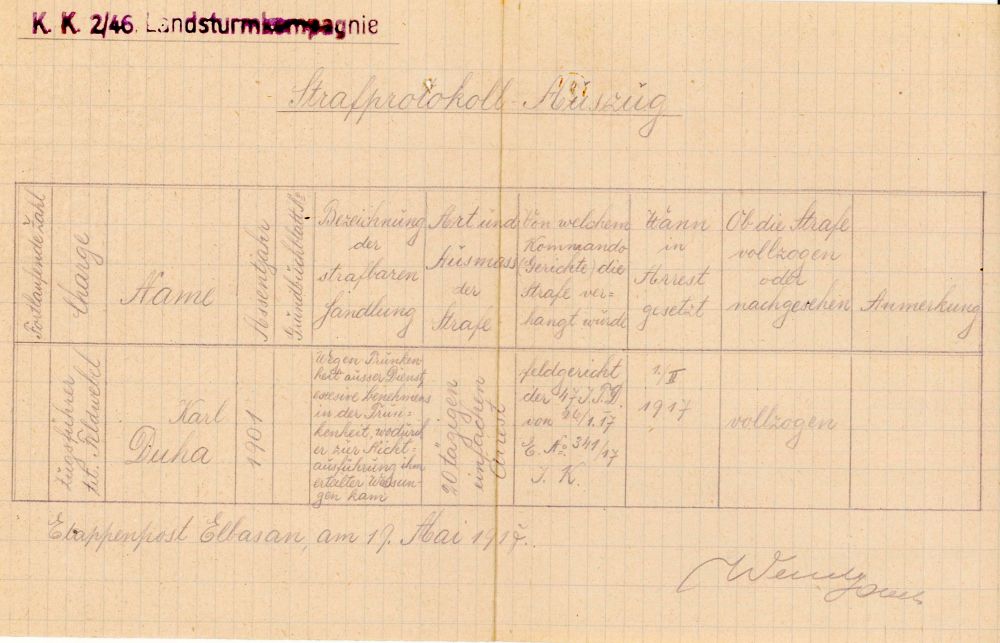 K. K. 2/46. Landsturmkompagnie
Strafprotokoll-Auszug
Fortlaufende Zahl
Charge
Name
Assentjahr
Grundbuchblatt
Bezeichnung
der
strafbaren
Handlung
Art und
Ausmass
der
Strafe
Von welchem
Kommando
(Gerichte) die
Strafe ver=
hangt wurde
Wann
in
Arrest
gesetzt
Ob die Strafe
vollzogen
oder
nachgesehen
Anmerkung
Zugsführer
tit. Feldwebel
Karl
Duha
1901
Wegen Trunken
heit ausser Dienst,
exesive Benehmens
in der Trun=
kenheit, wodurch
er zur Nicht=
ausführung ihm
erteilter Weisun=
gen kam
20 tägigen
einfachen
Arrest
Feldgericht
der 47 I.T.D.
von 26/1.17
E. No 341/17
J. K.
1./II
1917
vollzogen
Etappenpost Elbasan, am 19. Mai 1917.